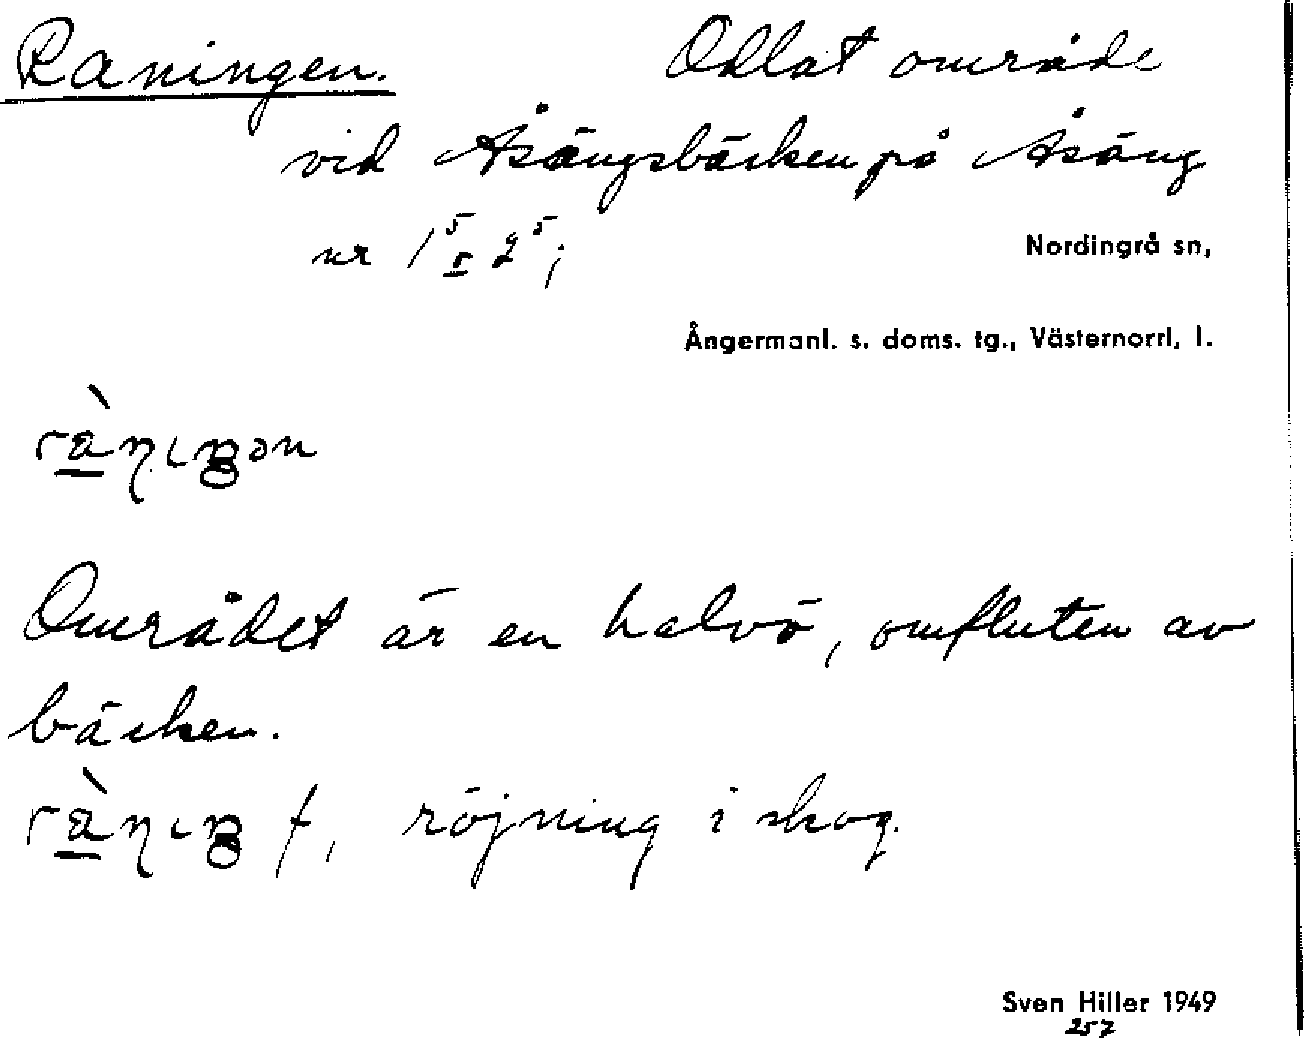 Raningen. Odlat område
vid Åsängsbäcken på Åsäng
nr 1⁵ r 2⁵;
Nordingrå sn,
Ångermanl. s. doms. tg., Västernorrl. l.
Området är en halvö, omfluten av
bäcken.
f, röjning i skog.
Sven Hiller 1949
257